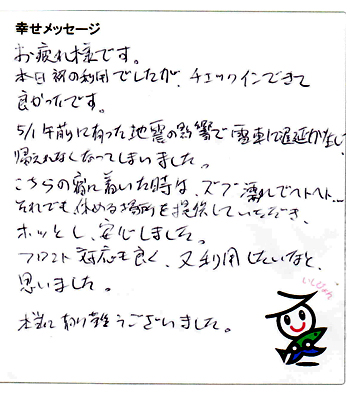 幸せメッセージ
お疲れ様です。
本日初の利用でしたが、チェックインできて
良かったです。
5/1午前に有った地震の影響で電車に遅延が生じ
帰えれなくなってしまいました。
こちらの宿に着いた時は、ズブ濡れでヘトヘト…
それでも、休める場所を提供していただき、
ホッとし、安心しました。
フロント対応も良く、又利用したいなと、
思いました。
本当に有り難うございました。